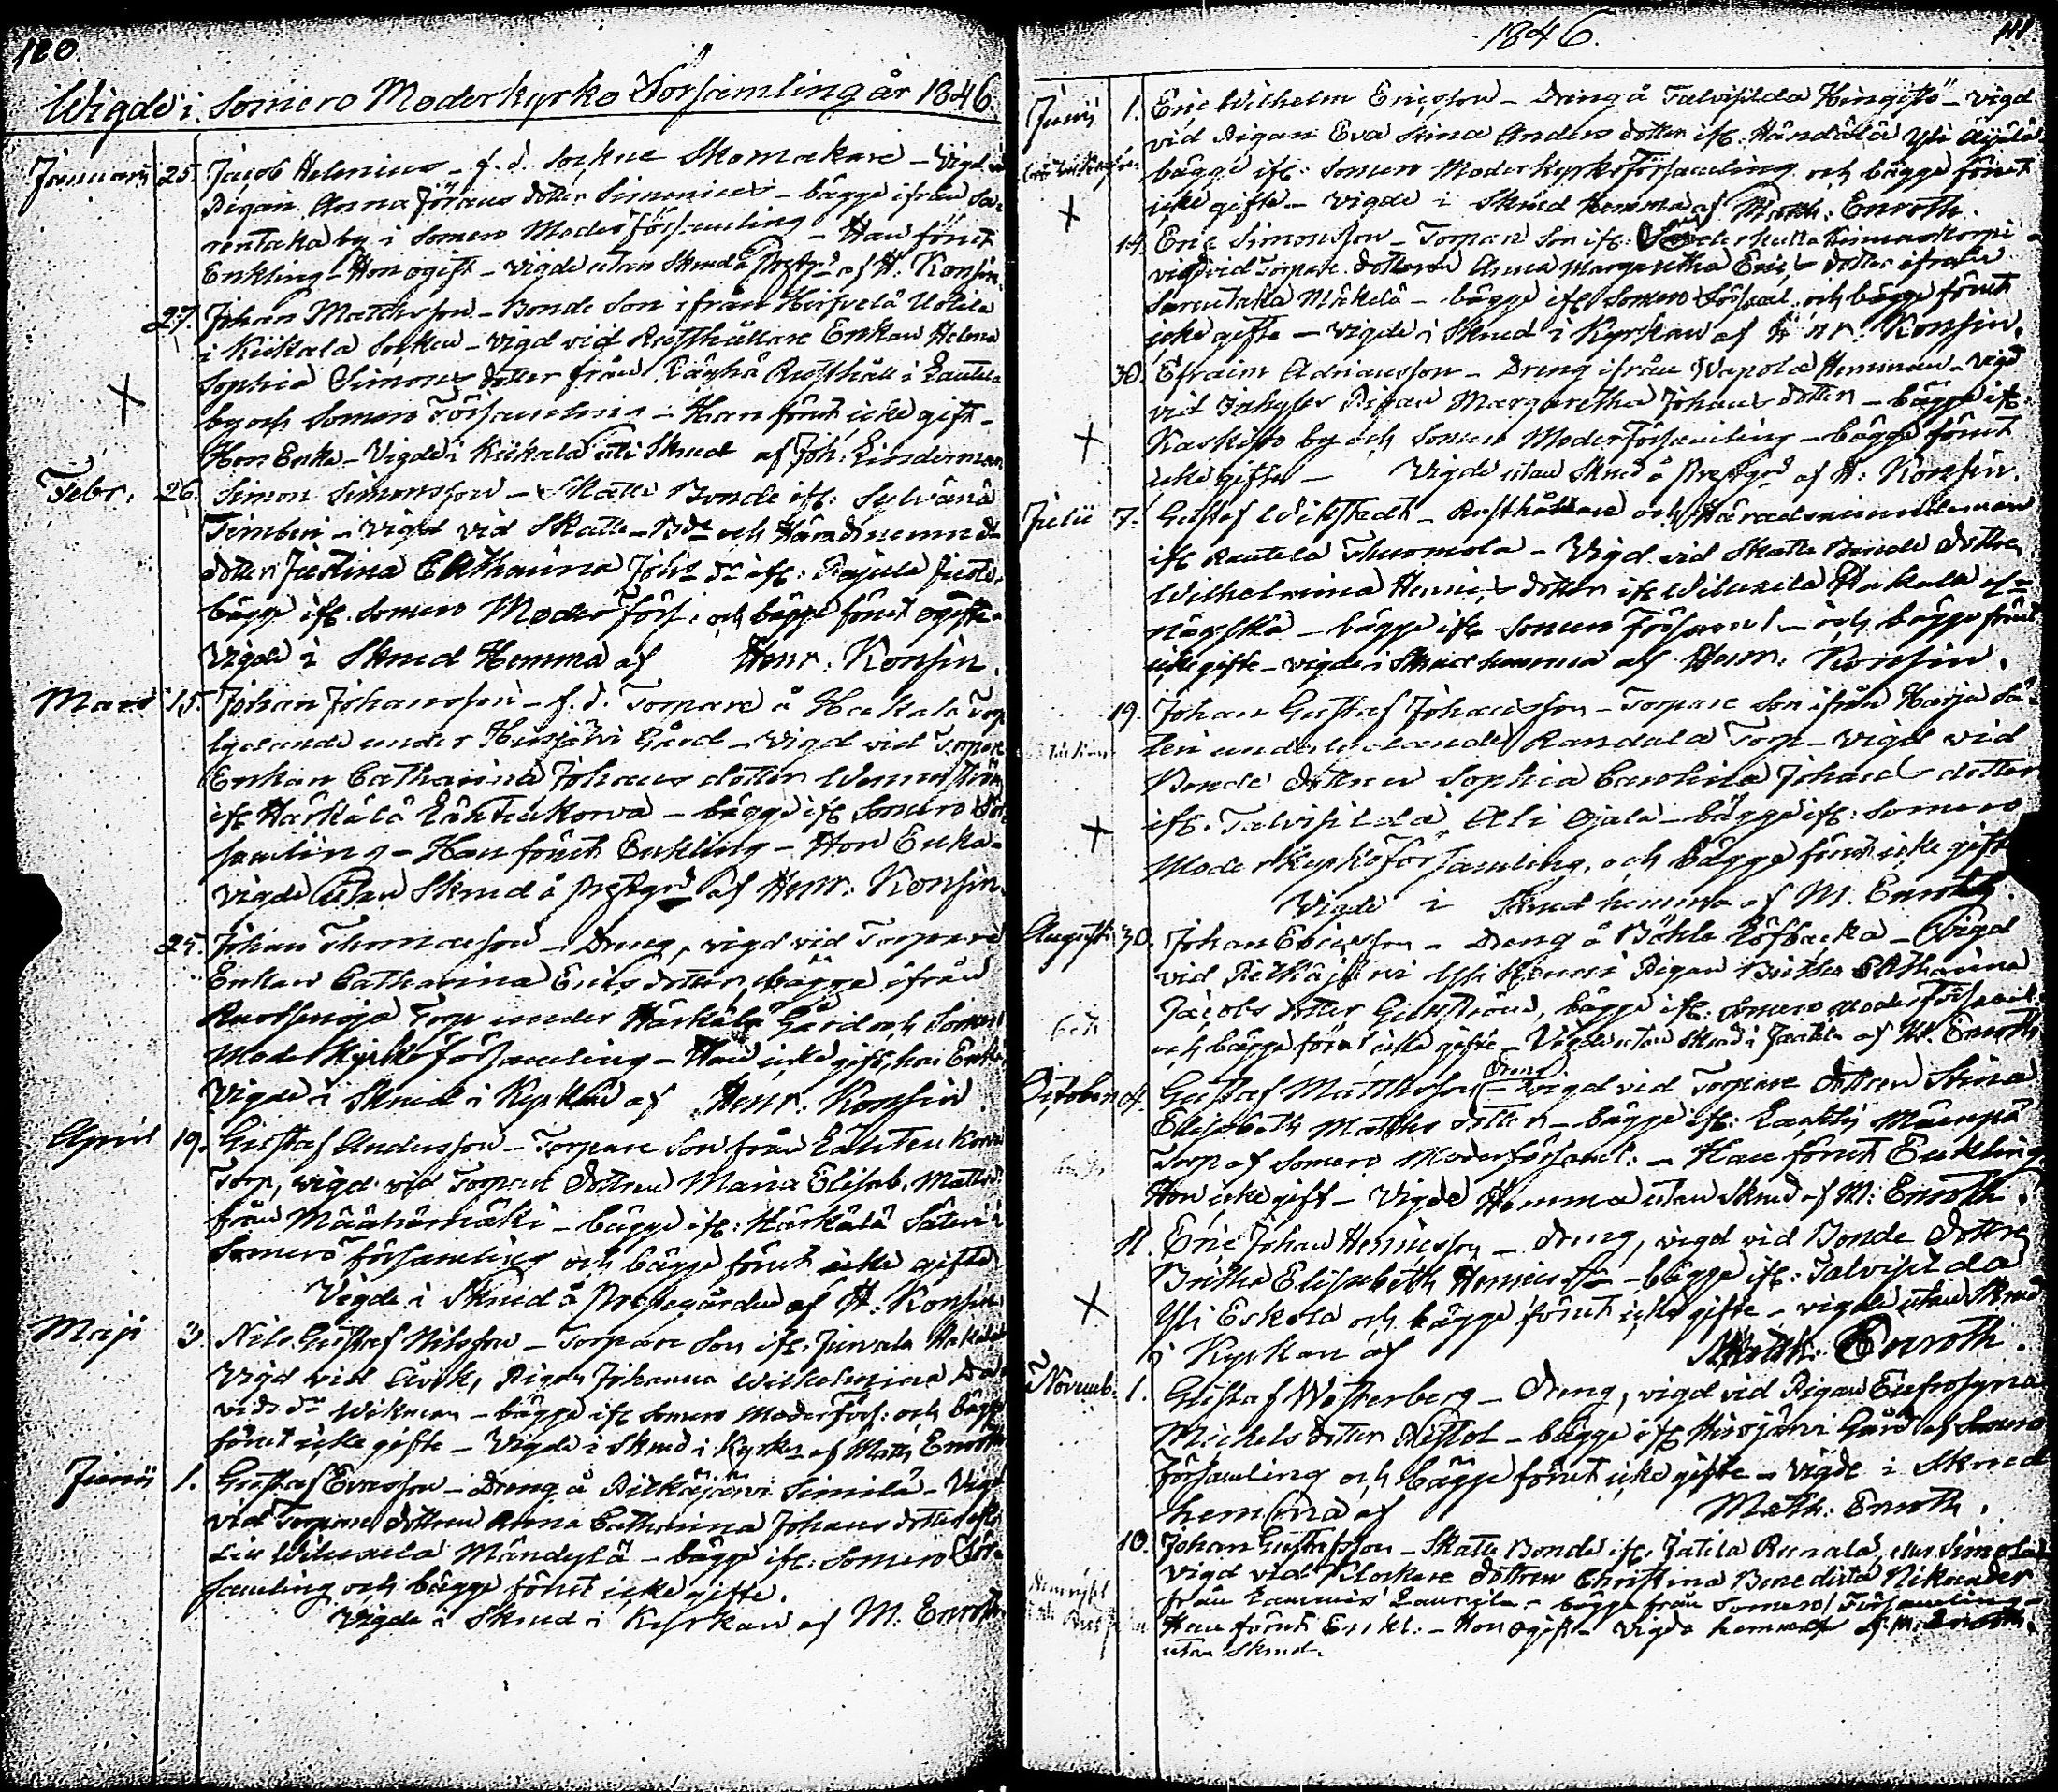 110.
Wigde i Somero Moderkyrko Församling år 1846.
Januarii 25. Jacob Helenius - f. d. Sockne Skomakare - Vigd vid
Pigan Anna Jörans dotter Simonius - bägge ifrån Sa-
rentaka by i Somero Moder Församling - Han förut
Enkling - Hon ogift - Vigde utan Skrud å Prestgrd af H. Konsin.
27. Johan Mattsson - Bonde Son ifrån Hirsvelä Uotila
i Kiikala Socken - Vigd vid Rusthållare Enkan Helena
Sophia Simons dotter från Käyhä Rusthåll i Rautela
by och Somero Församling - Han förut icke gift -
Hon Enka - Vigde i Kiikala uti Skrud af Joh: Linderman
Febr. 26. Simon Simonsson - Skatte Bonde ifr: Sylvänä
Timberi - Vigd vid Skatte-Bde och Häradsnemndm
dotter Justina Catharina Johs dr ifr: Pajula
bägge ifr. Somero Moder förs: och bägge förut ogifte
Vigde i Skrud Hemma af Henr: Konsin.
Mars 15. Johan Johansson - f. d. Torpare å Hakala Torp
lydande under Hirsjärvi Gård - Vigd vid Torpare
Enkan Catharina Johans dotter Wennström
ifr Härkälä Lähtenkorva - bägge ifr Somero För-
samling - Han förut Enkling - Hon Enka -
Vigde utan Skrud å Prestgrd af Henr: Konsin.
25. Johan Thomasson - Dreng, vigd vid Torpare
Enkan Catharina Erics dotter, bägge ifrån
Ruostenoja Torp under Härkälä Gård och Somero
Moder Kyrko församling - Han icke gift, hon Enka
Vigde i Skrud i Kyrkan af Henr: Konsin.
April 19. Gustaf Andersson - Torpare Son från Lähtenkorva
Torp, vigd vid Torpare dottren Maria Elisab. Mattsd:
från Määhämäki - bägge ifr: Härkälä Säteri i
Somero församling och bägge förut icke gifte
Vigde i Skrud å Prestegården af H. Konsin
Maji 3. Nils Gustaf Nilsson - Torpare Son ifr: Jurvala
Vigd vid Pigan Johanna Wilhelmina Da-
vids dr Wikman - bägge ifr Somero Moderförs: och bägge
förut icke gifte - Vigde i Skrud i Kyrkan af Math Enroth
Junii 1. Gustaf Ericsson - Dreng å Pitkäjärvi Simila - Vigd
vid Torpare dottren Anna Catharina Johans dotter
Wiluxela Mändylä - bägge ifr: Somero För-
samling och bägge förut icke gifte.
Vigde i Skrud i Kyrkan af M. Enroth
1846.
111
Junii 1. Eric Wilhelm Ericsson - Dreng å Talvisilda Hingista - Vigd
vid Pigan Eva Stina Anders dotter ifr: Häntälä Yli Äijälä
bägge ifr: Somero Moder Kyrkoförsamling och bägge förut
icke gifte - Vigde i Skrud Hemma af Math: Enroth.
14. Eric Simonsson - Torpare Son ifr:
vigd vid Torpare dottren Anna Margaretha Erics dotter ifrån
Sarentaka Mäkelä - bägge ifr Somero Församl: och bägge förut
icke gifte - Vigde i Skrud i Kyrkan af Henr: Konsin.
30. Efraim Adriansson - Dreng ifrån Wapola Hemman - Vigd
vid Inhyses Pigan Margaretha Johans dotter - bägge ifr:
Kaskisto by och Somero Moder Församling - bägge förut
icke gifte - Vigde utan Skrud å Prestgrd af H: Konsin.
Julii 7. Gustaf Wikstedt - Rusthållare och Häradsnämndeman
ifr Rautela Thuomola - Vigd vid Skatte Bonde dottren
Wilhelmina Henrics dotter ifr Wiluxela Hakala
- bägge ifr Somero Församl - och bägge förut
icke gifte - vigde i Skrud hemma af Henr: Konsin.
19. Johan Gustaf Johansson - Torpare Son ifrån Harju Sä-
teri underlydande Randala Torp - Vigd vid
Bonde dottren Sophia Carolina Johans dotter
ifr. Talvisilda Ali Ojala - bägge ifr: Somero
Moder Kyrkoförsamling, och bägge förut icke gifte
Vigde i Skrud hemma af M. Enroth.
Augusti 30. Johan Ericsson - Dreng å Böhle Löfbacka - Vigd
vid Pitkäjärvi Yli Pigan Britha Catharina
Jacobs dotter Gunström, bägge ifr: Somero Moder Församl
och bägge förut icke gifte - Vigde utan Skrud i Jaatila af M. Enroth
October 4. Gustaf Matthsson Dreng - vigd vid Torpare dottren Stina
Elisabeth Matths dotter - bägge ifr: Mäenpä
Torp af Somero Moderförsaml: - Han förut Enkling
Hon icke gift - Vigde Hemma utan Skrud af M: Enroth.
11. Eric Johan Henricsson - dreng, vigd vid Bonde dottren
Britha Elisabeth Henrics dr - bägge ifr: Talvisilda
Yli Eskola och bägge förut icke gifte - vigde utan Skrud
i Kyrkan af Math: Enroth.
Novemb. 1. Gustaf Westerberg - Dreng, vigd vid Pigan Eufrosyna
Michels dotter Pistol - bägge ifr Hirsjärvi Gård af Somero
Församling och bägge förut icke gifte - Vigde i Skrud
hemma af Math: Enroth.
10. Johan Gustafsson - Skatte Bonde ifr. Jatila Runala
vigd vid Klockare dottren Christina Benedicta Nikander
från Lammis Laurila - bägge från Somero Församling -
Han förut Enkl: - Hon ogift - Vigde hemma af M: Enroth
utan Skrud.